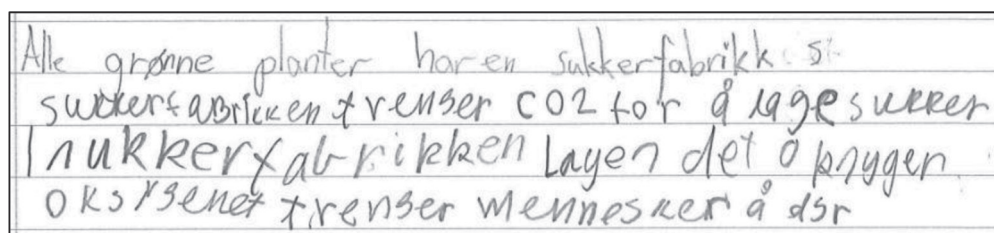 Alle grønne planter har en sukkerfabrikk s
sukkerfabrikken trenger CO2 for å lage sukker
I nukkerfabrikken Layen det opnygen.
oksygenet trenger mennesker å dyr